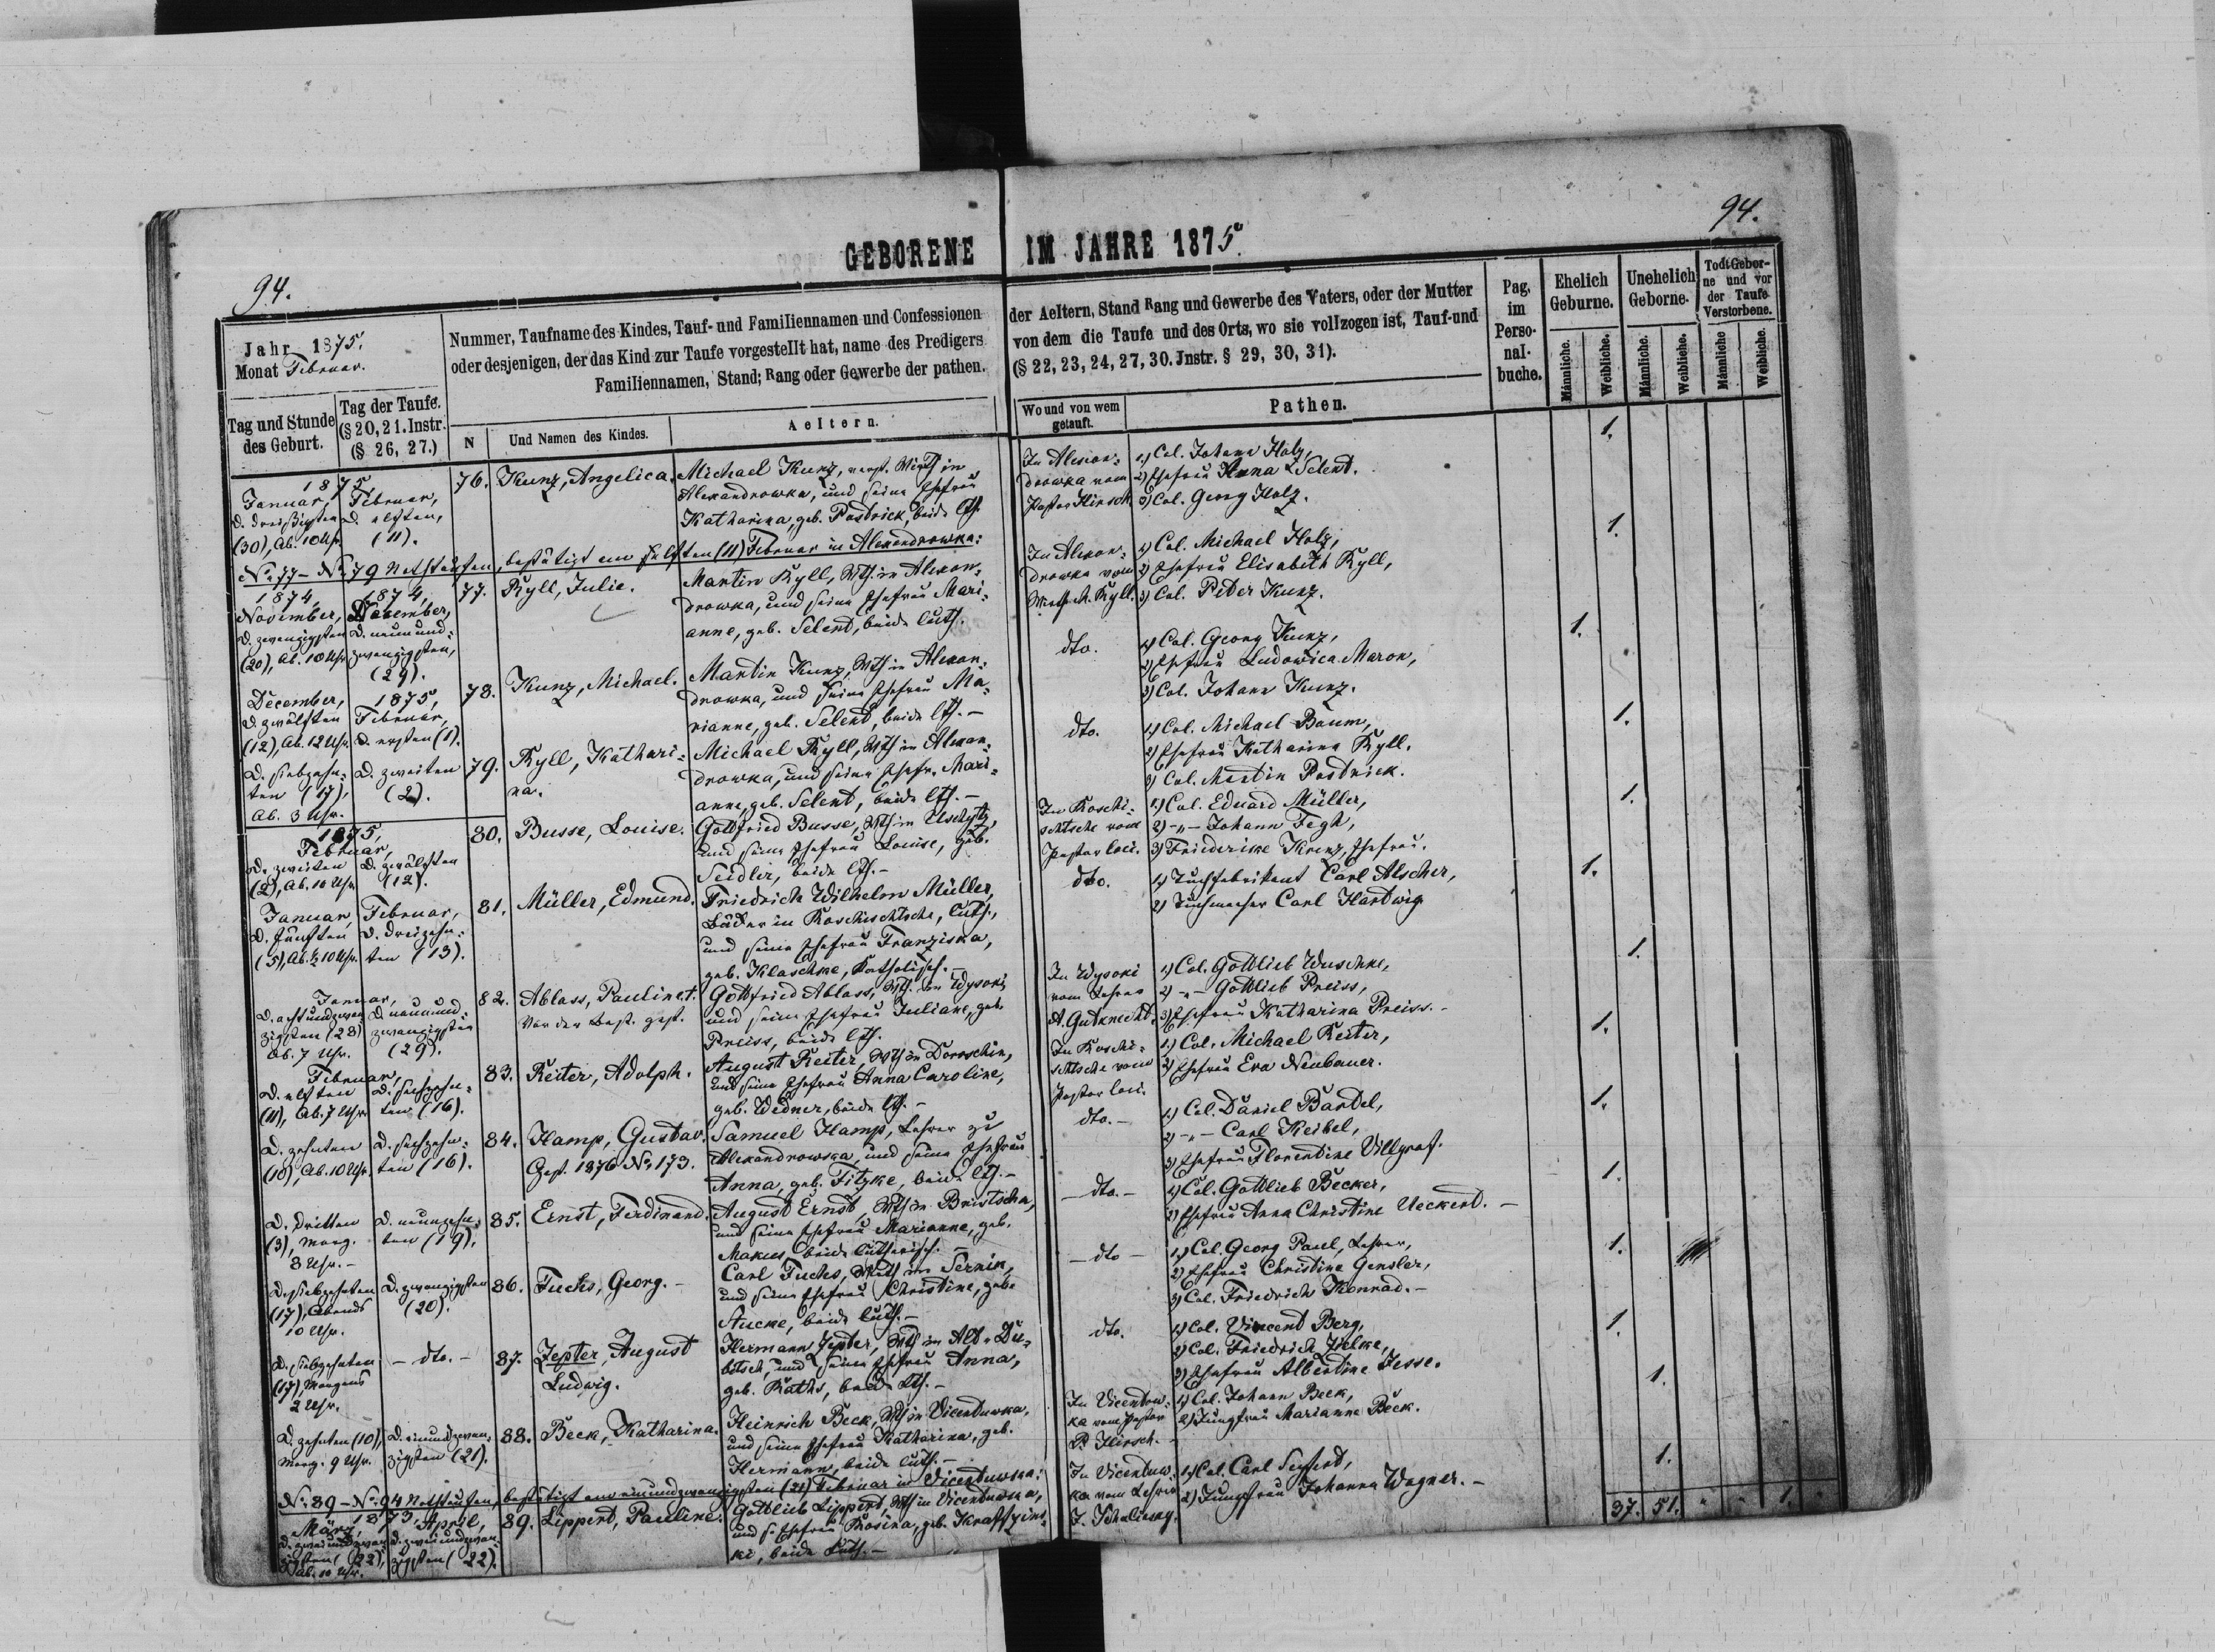 94.
GEBORENE IM JAHRE 1875.
94.
Jahr 1875.
Monat Februar.
Tag und Stunde
des Geburt.
Tag der Taufe.
(§ 20, 21. Instr.
(§ 26, 27.)
Nummer, Taufname des Kindes, Tauf- und Familiennamen und Confessionen
oder desjenigen, der das Kind zur Taufe vorgestellt hat, name des Predigers
Familiennamen, Stand; Rang oder Gewerbe der pathen.
N
Und Namen des Kindes.
Aeltern.
der Aeltern, Stand Rang und Gewerbe des Vaters, oder der Mutter
von dem die Taufe und des Orts, wo sie vollzogen ist, Tauf-und
(§ 22, 23, 24, 27, 30. Jnstr. § 29, 30, 31).
Wo und von wem
getauft.
Pathen.
Pag.
im
Perso-
nal-
buche.
Ehelich
Geburne.
Unehelich
Geborne.
Todt Gebor-
ne und vor
der Taufe
Verstorbene.
Männliche.
Weibliche.
Männliche.
Weibliche.
Männliche
Weibliche.
1875,
Januar,
d. dreißigsten
(30), Ab. 10 Uhr.
Februar,
d. elften,
(11).
76. Kunz, Angelica.
Michael Kunz, Wirth in
Alexandrowka, und seine Ehefrau
Katharina, geb. Pastrick, beide lth.
In Alexan-
drowka vom
Pastor Hirsch.
1) Col. Johann Holz,
2) Ehefrau Anna Selent.
3) Col. Georg Holz.
1.
No 77 - No 79 Nothtaufen, bestätigt am elften (11) Februar in Alexandrowka:
1874,
November,
d. zwanzigsten
(20), Ab. 10 Uhr
1874,
November,
d. neunund-
zwanzigsten,
(29).
77. Ryll, Julie.
Martin Ryll, Wth. in Alexan-
drowka, und seine Ehefrau Mari-
anne, geb. Selent, beide luth.
In Alexan-
drowka vom
Ryll.
1) Col. Michael Holz,
2) Ehefrau Elisabeth Ryll,
3) Col. Peter Kunz.
1.
December,
d. zwölften
(12), Ab. 12 Uhr.
1875,
Februar,
d. ersten (1).
78. Kunz, Michael.
Martin Kunz, Wth in Alexan-
drowka, und seine Ehefrau Ma-
rianne, geb. Selent, beide lth. -
dto.
1) Col. Georg Kunz,
2) Ehefrau Ludowica Maron,
3) Col. Johann Kunz.
1.
d. siebzehn-
ten (17),
Ab. 3 Uhr.
d. zweiten
(2).
79. Ryll, Kathari-
na.
Michael Ryll, Wth in Alexan-
drowka, und seine Ehefr. Mari-
anne, geb. Selent, beide lth. -
dto.
1) Col. Michael Baum,
2) Ehefrau Katharina Ryll.
3) Col. Martin Pastrick.
1.
1875,
Februar,
d. zweiten
(2), Ab. 10 Uhr
d. zwölften
(12).
80. Busse, Louise.
Gottfried Busse, Wth in
und seine Ehefrau Louise, geb.
Seidler, beide lth. -
In Roschi-
schtsche vom
Pastor loci.
1) Col. Eduard Müller,
2) -„- Johann Fegh,
3) Friederike Krenz, Ehefrau.
1.
Januar,
d. fünften
(5), Ab. ½ 10 Uhr.
Februar,
d. dreizehn-
ten (13).
81. Müller, Edmund.
Friedrich Wilhelm Müller,
in Roschischtsche, luth.,
und seine Ehefrau Franziska,
geb. Klaschke, katholisch. -
dto.
1) Tuchfabrikant Carl Alscher,
2) Tuchmacher Carl Hartwig
1.
Januar,
d. achtundzwan-
zigsten (28)
Ab. 7 Uhr.
d. neunund-
zwanzigsten
(29).
82. Ablass, Pauline †.
Vor der Best. gest.
Gottfried Ablass, Wth. in Wysoki
und seine Ehefrau Juliane, geb.
Preiss, beide lth.
In Wysoki
vom Lehrer
A. Gutknecht.
1) Col. Gottlieb Wuschke,
2) -„- Gottlieb Preiss,
3) Ehefrau Katharina Preiss. -
1.
Februar,
d. elften
(11), Ab. 7 Uhr.
d. sechzehn-
ten (16).
83. Reiter, Adolph.
August Reiter, Wth in Doroschin,
und seine Ehefrau Anna Caroline,
geb. Wedner, beide lth. -
In Roschi-
schtsche vom
Pastor loci.
1) Col. Michael Reiter,
2) Ehefrau Eva Neubauer.
1.
d. zehnten
(10), Ab. 10 Uhr.
d. sechzehn-
ten (16).
84. Hamp, Gustav.
Gest. 1876 No 173.
Samuel Hamp, Lehrer zu
Alexandrowka, und seine Ehefrau
Anna, geb. Fitzke, beide lth. -
dto. -
1) Col. Daniel Bardel,
2) -„- Carl Keibel,
3) Ehefrau Florentine Villgraf.
1.
d. dritten
(3), Morg.
8 Uhr. -
d. neunzehn-
ten (19).
85. Ernst, Ferdinand.
August Ernst, Wth in
und seine Ehefrau Marianne, geb.
Makus, beide lutherisch. -
- dto. -
1) Col. Gottlieb Becker,
2) Ehefrau Anna Christine Ueckert. -
1.
d. siebzehnten
(17), Abends
10 Uhr.
d. zwanzigsten
(20).
86. Fuchs, Georg. -
Carl Fuchs, Wth in Sernik,
und seine Ehefrau Christine, geb.
Stucke, beide luth. -
- dto -
1) Col. Georg Paul, Lehrer,
2) Ehefrau Christine Gensler,
3) Col. Friedrich Konrad. -
1.
d. siebzehnten
(17), Morgens
2 Uhr.
- dto. -
87. Zepter, August
Ludwig.
Hermann Zepter, Wth in Alt-Du-
bitsch, und seine Ehefrau Anna,
geb. Raths, beide lth. -
dto.
1) Col. Vincent Berg,
2) Col. Friedrich Zielke,
3) Ehefrau Albertine Jesse.
1.
d. zehnten (10),
Morg. 9 Uhr.
d. einundzwan-
zigsten (21).
88. Beck, Katharina.
Heinrich Beck, Wth in Vicentuwka,
und seine Ehefrau Katharina, geb.
Hermann, beide luth. -
In Vicentuw-
ka vom Pastor
P. Hirsch. -
1) Col. Johann Beck,
2) Jungfrau Marianne Beck.
1.
No: 89 - No: 94 Nothtaufen, bestätigt am einundzwanzigsten (21) Februar in Vicentuwka:
1873,
März,
d. zweiundzwan-
zigsten (22),
Ab. 10 Uhr.
April,
d. zweiundzwan-
zigsten (22).
89. Lippert, Pauline.
Gottlieb Lippert, Wth in Vicentuwka,
und s. Ehefrau Rosina, geb.
ki, beide luth. -
In Vicentuw-
ka vom Lehrer
1) Col. Carl Seifert,
2) Jungfrau Johanna Wagner. -
1.
37. 51. „ „ 1. „